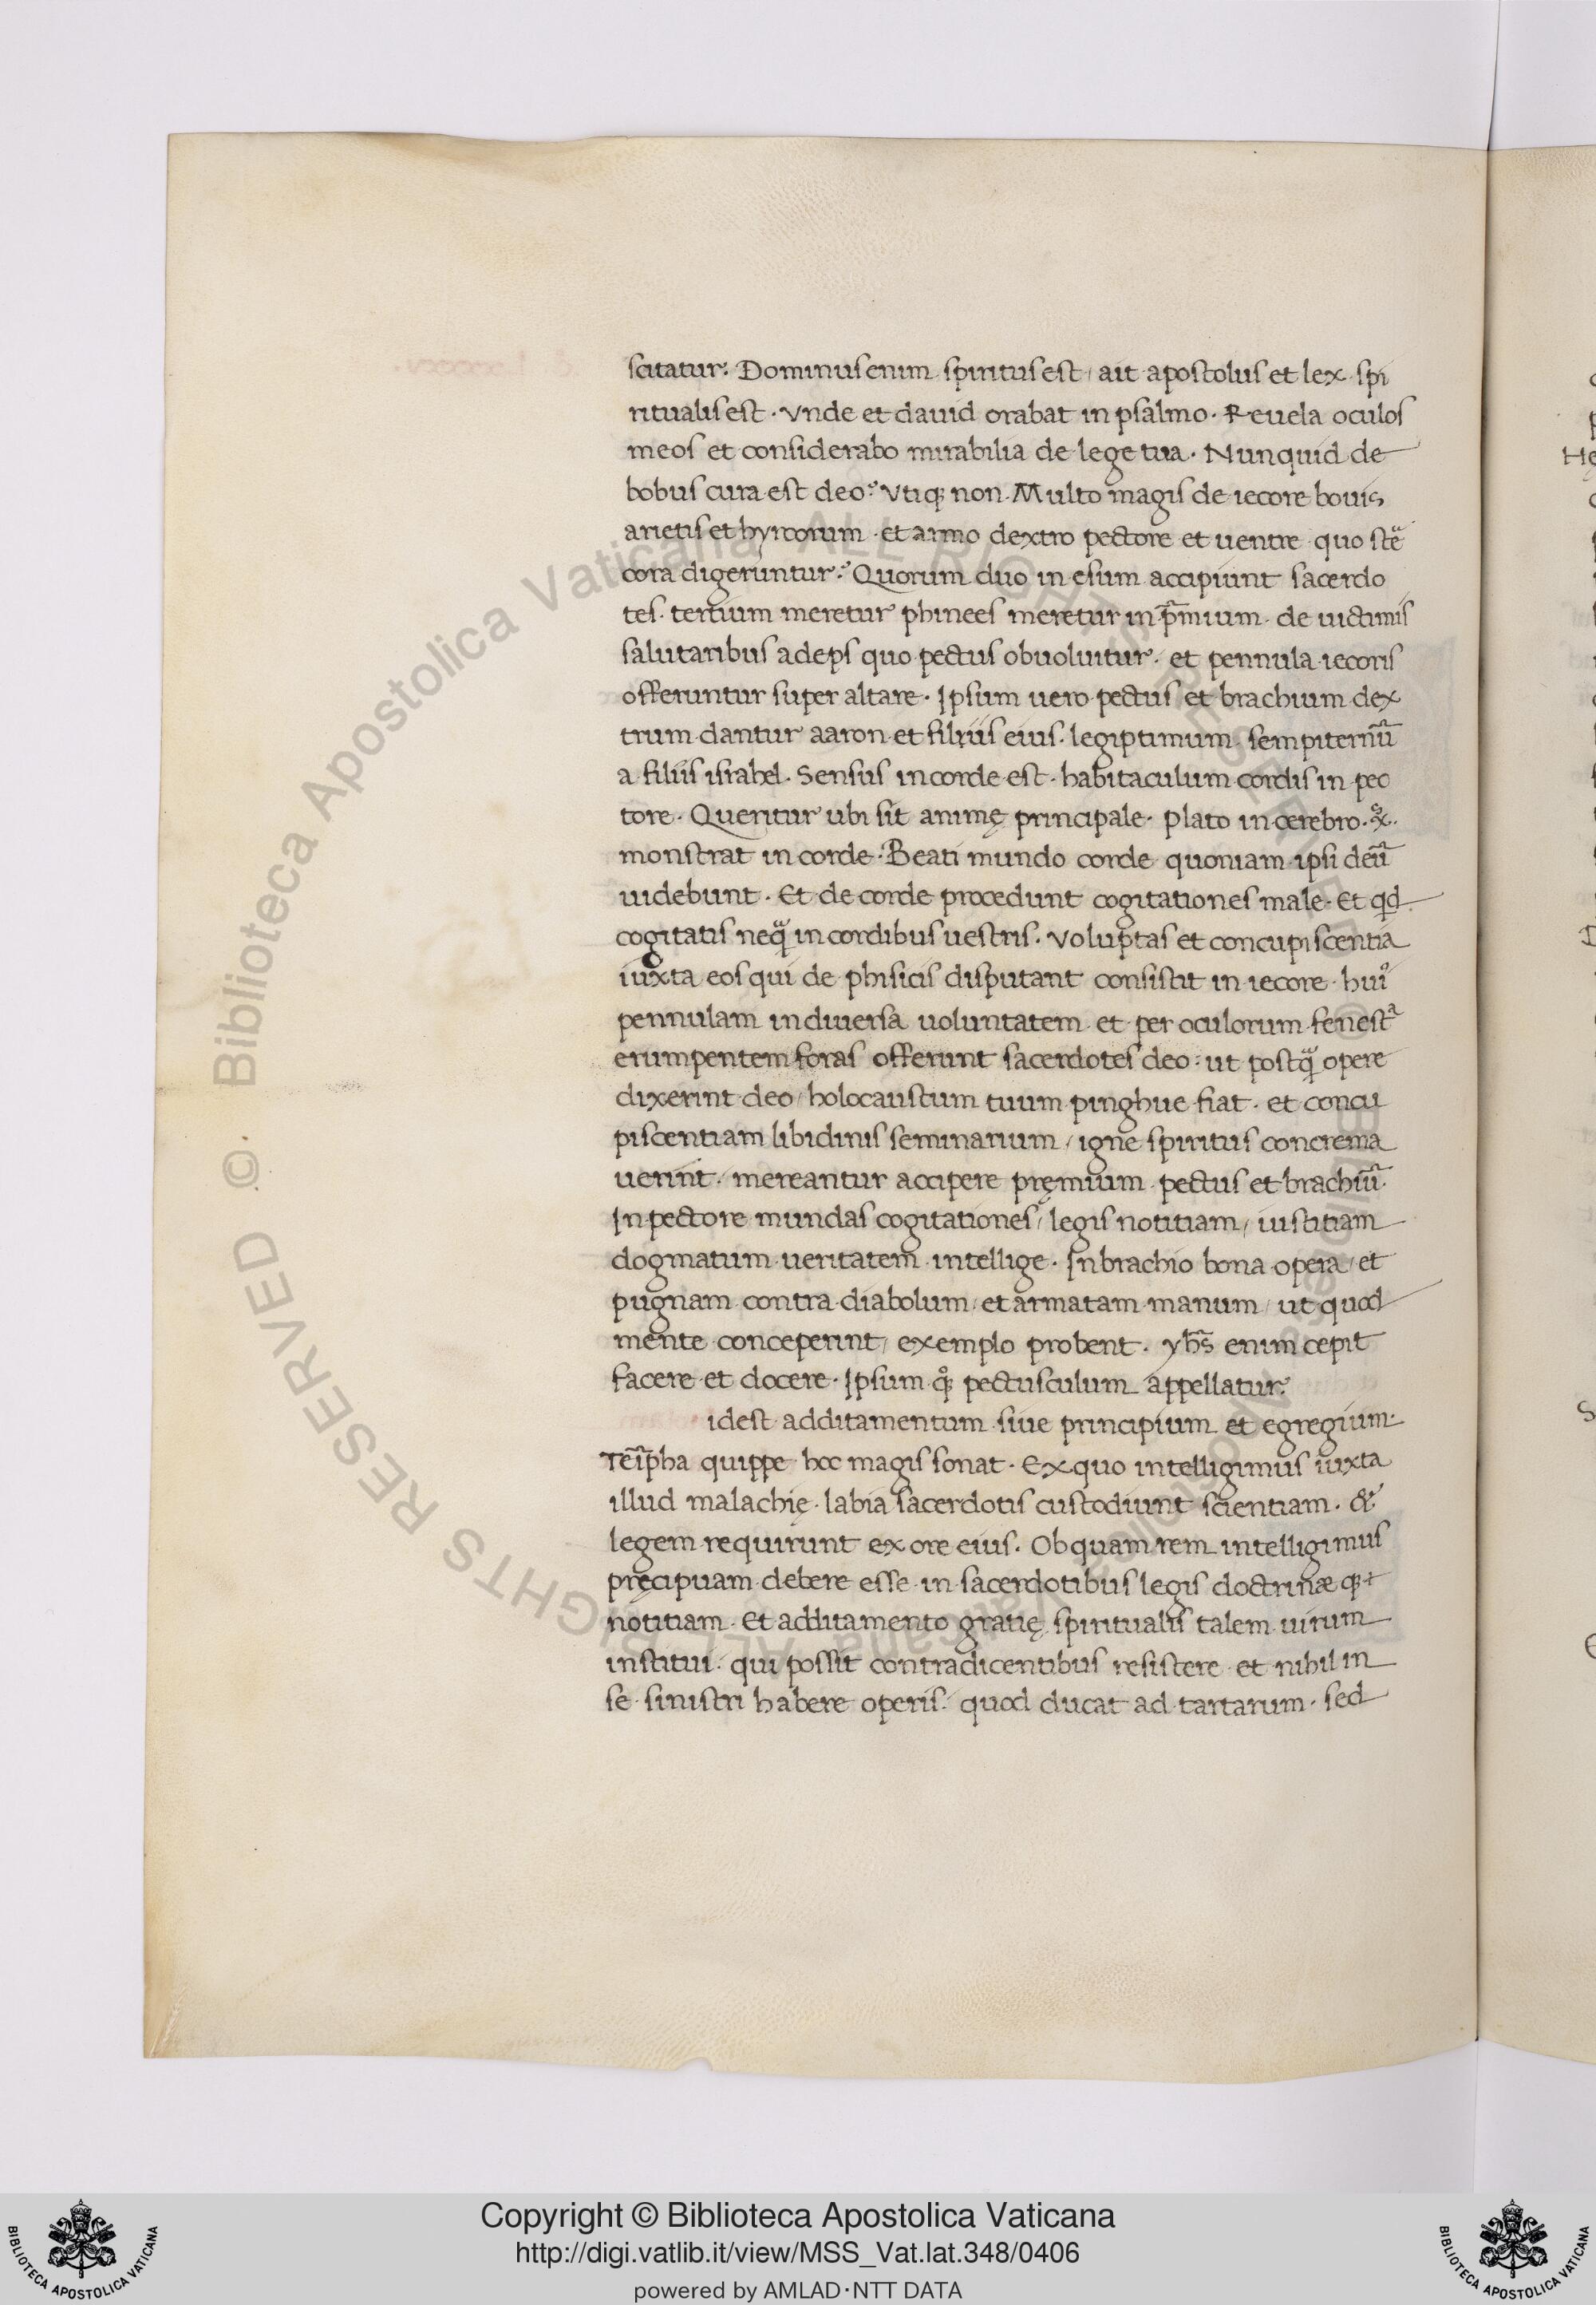 scitatur. Dominus enim spiritus est / ait apostolus et lex spi
ritualis est. Vnde et dauid orabat in psalmo. Reuela oculos
meos et considerabo mirabilia de lege tua. Nunquid de
bobus cura est deo? Vtiqꝫ non. Multo magis de iecore bouis
arietis et hyrcorum. et armo dextro pectore et uentre quo stẽ
cora digeruntur? Quorum duo in esum accipiunt sacerdo
tes. tertium meretur phinees meretur in p̃mium. de uictimis
salutaribus adeps quo pectus obuoluitur. et pennula iecoris
offeruntur super altare. Ipsum uero pectus et brachium dex
trum dantur aaron et filiis eius. legiptimum sempiternũ
a filiis israhel. Sensus in corde est. habitaculum cordis in pec
tore. Queritur ubi sit animę principale. Plato in cerebro.
monstrat in corde. Beati mundo corde quoniam ipsi deũ
uidebunt. Et de corde procedunt cogitationes male. Et qd
cogitatis neq̃ in cordibus uestris. Voluptas et concupiscentia
iuxta eos qui de phisicis disputant consistit in iecore. hui᾿
pennulam in diuersa uoluntatem et per oculorum fenestᵃ
erumpentem foras offerunt sacerdotes deo: ut postq̃ opere
dixerint deo / holocaustum tuum pinghue fiat. et concu
piscentiam libidinis seminarium / igne spiritus concrema
uerint. mereantur accipere pręmium pectus et brachiũ.
In pectore mundas cogitationes / legis notitiam / iustitiam
dogmatum ueritatem intellige. In brachio bona opera / et
pugnam contra diabolum / et armatam manum / ut quod
mente conceperint / exemplo probent. yhs̃ enim cepit
facere et docere. Ipsum qͦꝫ pectusculum appellatur.
idest additamentum siue principium et egregium.
Teĩpha quippe hoc magis sonat. Ex quo intelligimus iuxta
illud malachię. labia sacerdotis custodiunt scientiam. &
legem requirunt ex ore eius. Ob quam rem intelligimus
pręcipuam debere esse in sacerdotibus legis doctrinæ qꝫ
notitiam. Et additamento gratię spiritualis talem uirum
institui. qui possit contradicentibus resistere et nihil in
se sinistri habere operis. quod ducat ad tartarum. sed
Copyright © Biblioteca Apostolica Vaticana
http://digi.vatlib.it/view/MSS_Vat.lat.348/0406
powered by AMLAD·NTT DATA